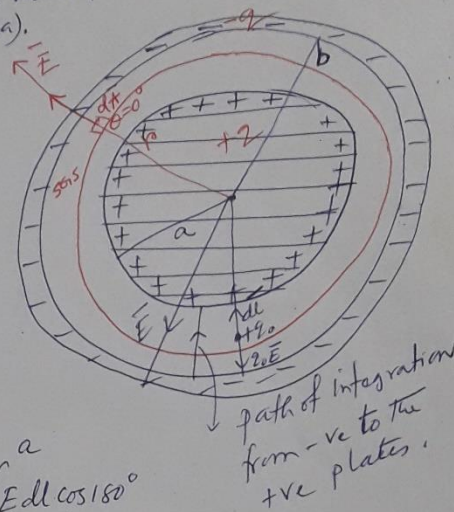 a).
-q
b
E
dA
θ=0°
r
+q
a
E
dl
+q₀
q₀E
path of integration
from -ve to the
+ve plates.
a
Edl cos180°